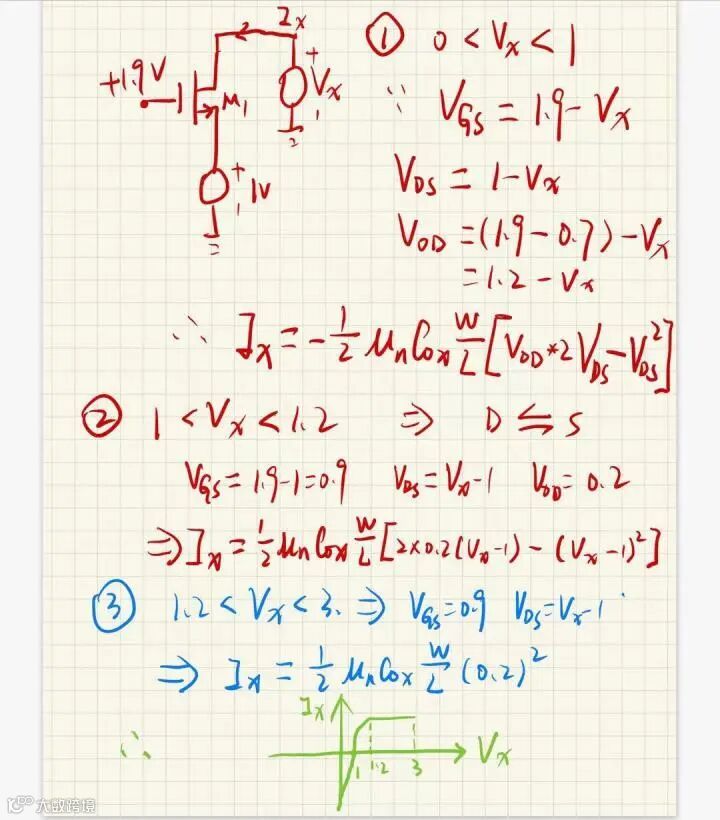 Ix
+1.9V
M1
+
Vx
-
+
1V
-
① 0 < Vx < 1
∵ VGS = 1.9 - Vx
VDS = 1 - Vx
VOD = (1.9 - 0.7) - Vx
= 1.2 - Vx
∴ Ix = -1/2 μnCox W/L [VOD*2 VDS - VDS²]
② 1 < Vx < 1.2 ⇒ D ⇆ S
VGS = 1.9 - 1 = 0.9 VDS = Vx - 1 VOD = 0.2
⇒ Ix = 1/2 μnCox W/L [2×0.2(Vx-1) - (Vx-1)²]
③ 1.2 < Vx < 3. ⇒ VGS = 0.9 VDS = Vx - 1
⇒ Ix = 1/2 μnCox W/L (0.2)²
Ix
∴ Vx
1 1.2 3
大数跨境